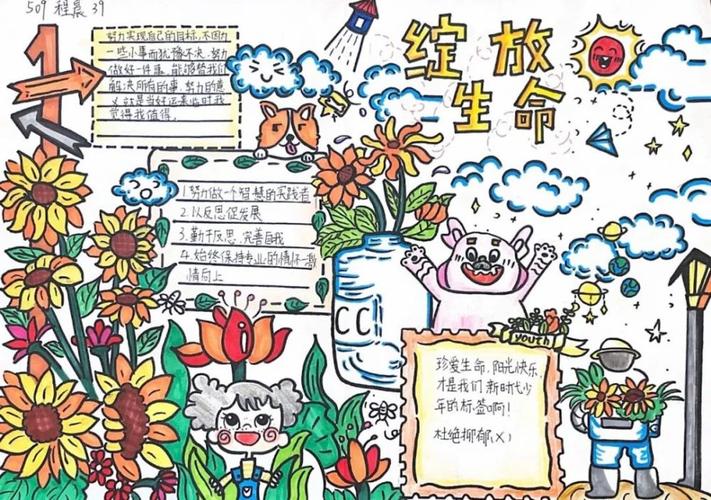 509 程晨 39
绽放
生命
努力实现自己的目标,不因为
一些小事而犹豫不决,努力
做好一件事,能够替我们
解决所有的事,努力的意
义就是当好运来临时我
觉得我值得。
1.努力做一个智慧的实践者
2.以反思促发展
3.勤于反思,完善自我
4.始终保持专业的情怀
情向上
CC
youth
珍爱生命,阳光快乐,
才是我们新时代少
年的标签啊!
杜绝抑郁(X)